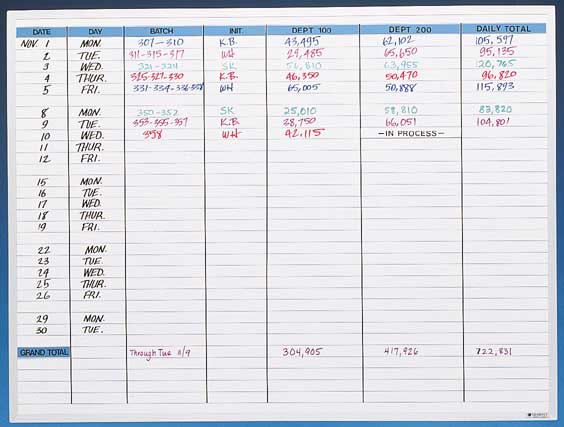 DATE DAY BATCH INIT. DEPT. 100 DEPT 200 DAILY TOTAL
NOV. 1 MON. 307-310 K.B. 43,495 62,102 105,597
2 TUE. 311-315-317 WH 29,485 65,650 95,135
3 WED. 321-324 SK 56,810 63,955 120,765
4 THUR. 325-327-330 K.B. 46,350 50,470 96,820
5 FRI. 331-334-336- WH 65,005 50,888 115,893
8 MON. 350-352 SK 25,010 58,810 83,820
9 TUE. 353-355-357 K.B. 38,750 66,051 104,801
10 WED. 358 WH 42,115 —IN PROCESS—
11 THUR.
12 FRI.
15 MON.
16 TUE.
17 WED.
18 THUR.
19 FRI.
22 MON.
23 TUE.
24 WED.
25 THUR.
26 FRI.
29 MON.
30 TUE.
GRAND TOTAL Through Tue 11/9 304,905 417,926 722,831